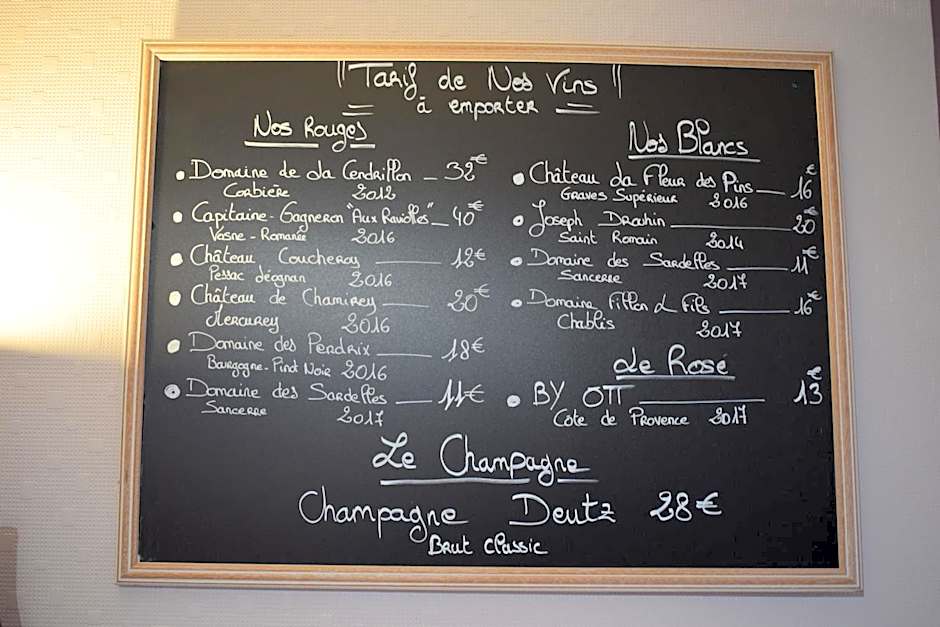 "Tarif de Nos Vins"
à emporter
Nos Rouges
Domaine de La Cendrillon 32€
Corbière 2012
Capitaine-Gagneron "Aux Raviolles" 40€
Vosne-Romanée 2016
Château Coucheroy 12€
Pessac Léognan 2016
Château de Chamirey 20€
Mercurey 2016
Domaine des Perdrix 18€
Bourgogne-Pinot Noir 2016
Domaine des Sardelles 11€
Sancerre 2017
Nos Blancs
Château La Fleur des Pins 16€
Graves Supérieur 2016
Joseph Drouhin 20€
Saint Romain 2014
Domaine des Sardelles 11€
Sancerre 2017
Domaine Fillon & Fils 16€
Chablis 2017
Le Rosé
BY OTT 13€
Côte de Provence 2017
Le Champagne
Champagne Deutz 28€
Brut Classic